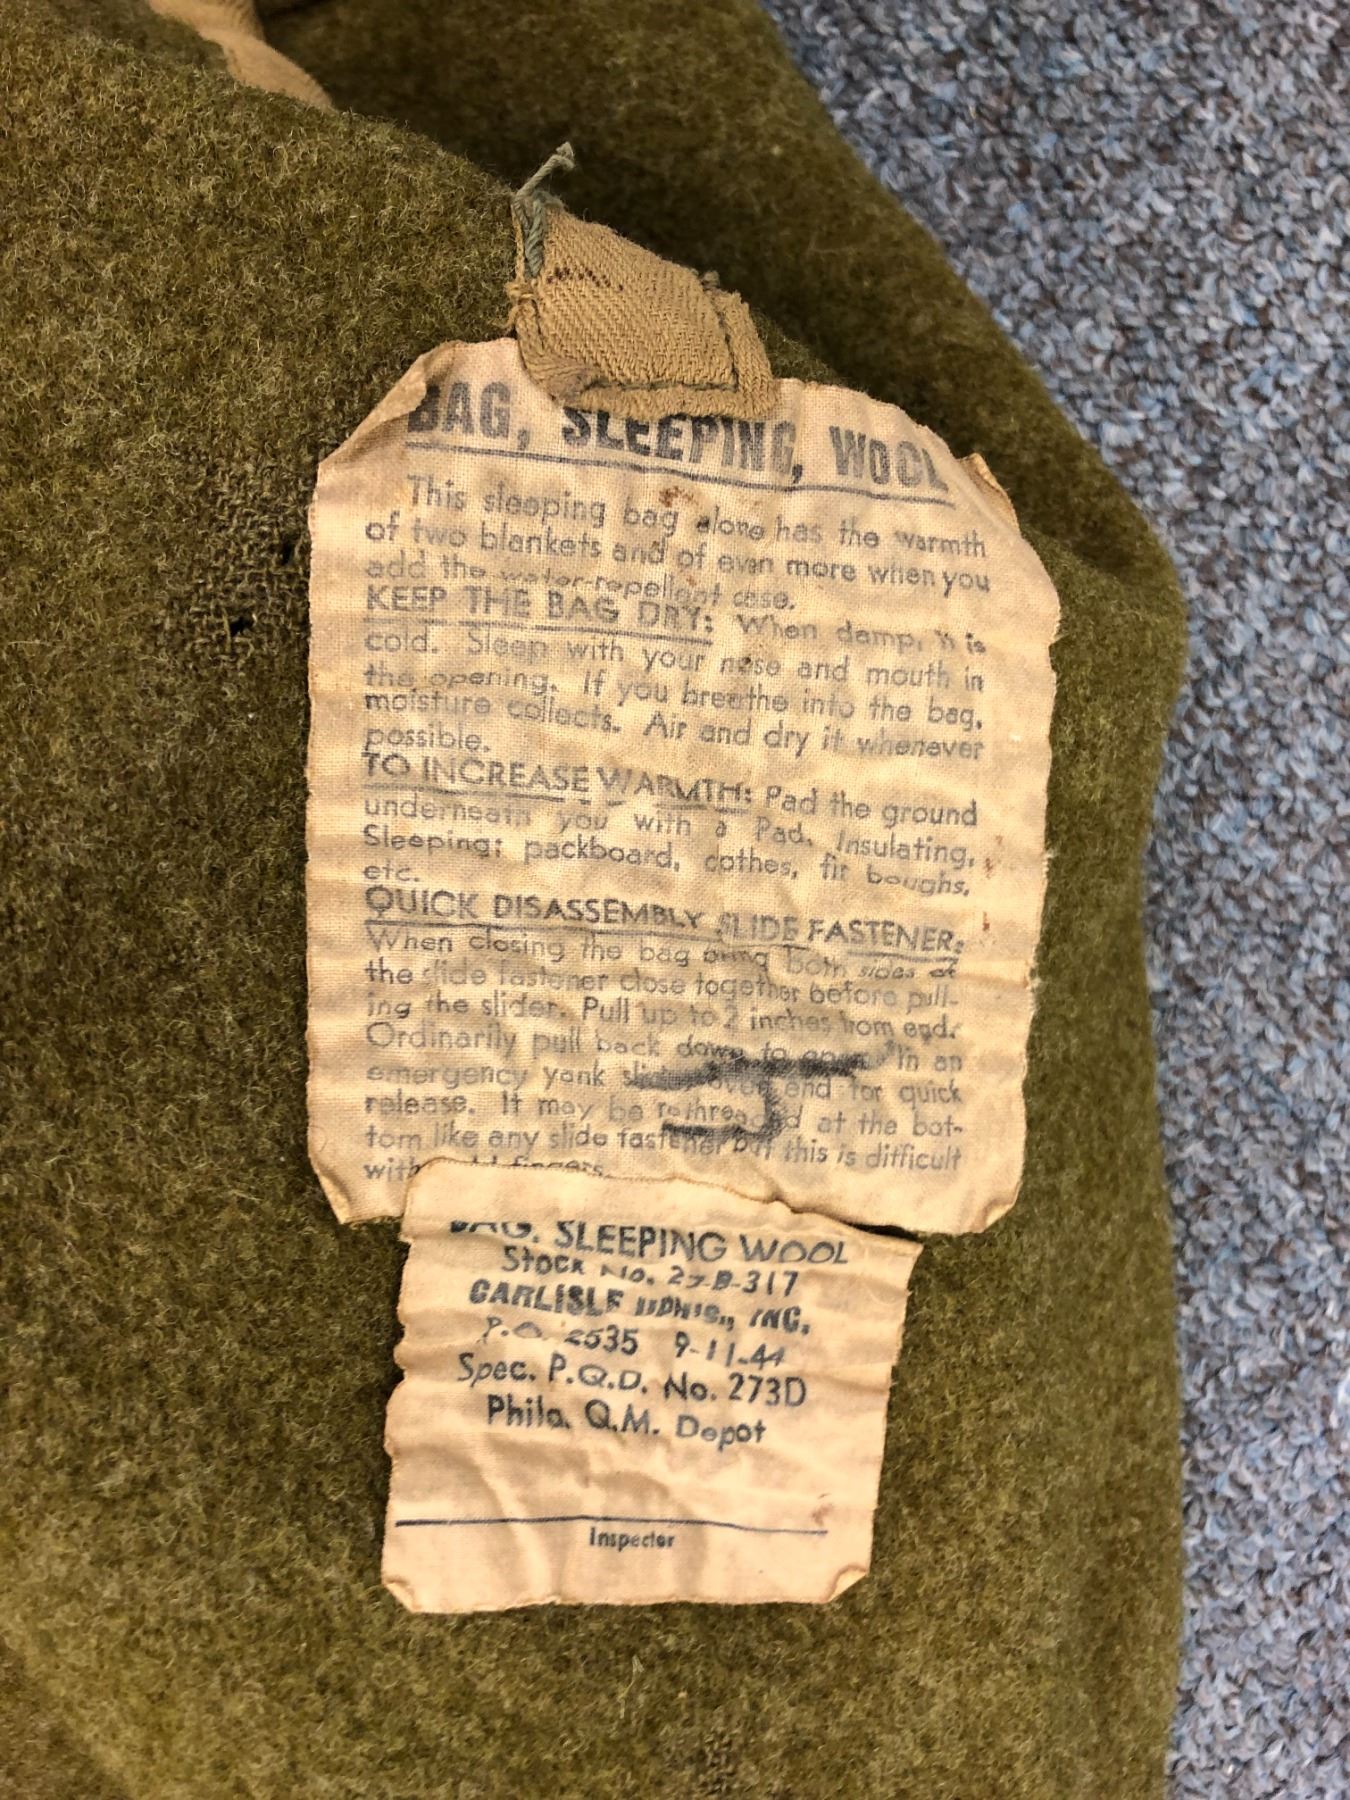 BAG, SLEEPING, WOOL
This sleeping bag alone has the warmth
of two blankets and of even more when you
add the water-repellent case.
KEEP THE BAG DRY: When damp, it is
cold. Sleep with your nose and mouth in
the opening. If you breathe into the bag,
moisture collects. Air and dry it whenever
possible.
TO INCREASE WARMTH: Pad the ground
underneath you with a Pad, Insulating,
Sleeping; packboard, cothes, fir boughs,
etc.
QUICK DISASSEMBLY SLIDE FASTENER:
When closing the bag bring both sides of
the slide fastener close together before pull-
ing the slider. Pull up to 2 inches from end.
Ordinarily pull back down to open. In an
emergency yank slider over end for quick
release. It may be rethreaded at the bot-
tom like any slide fastener but this is difficult
with fingers.
BAG, SLEEPING WOOL
Stock No. 27-B-317
CARLISLE INC.
P.O. 2535 9-11-44
Spec. P.Q.D. No. 273D
Phila. Q.M. Depot
Inspector